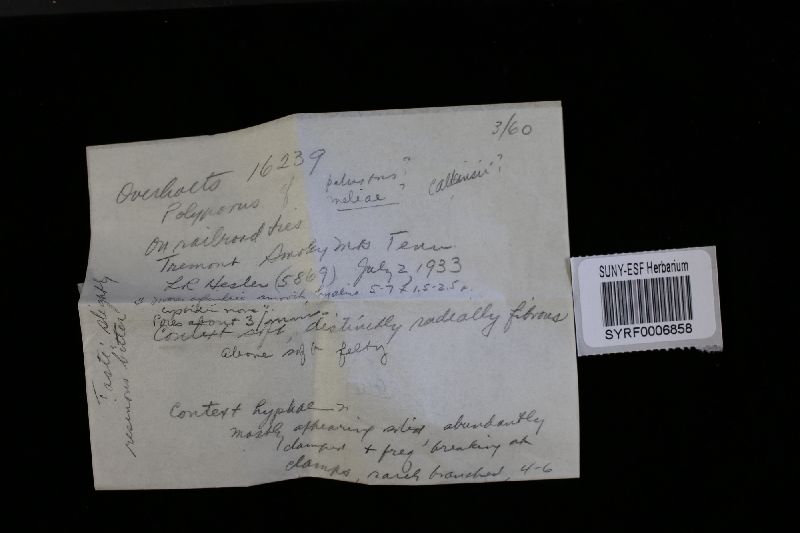 3/60
Overholts 16239
Polyporus of palustris?
meliae? calkinsii?
On railroad ties
Tremont Smoky Mts Tenn
L.R. Hesler (5869) July 2, 1933
smooth, hyaline 5-7 x 1.5-2.5 µ,
cystidia none
Pores about 3 per mm.
Context soft, distinctly radially fibrous
above soft felty
Taste: slightly
resinous bitter
Context hyphae
mostly appearing solid abundantly
clamped + freq breaking at
clamps, rarely branched, 4-6
SUNY-ESF Herbarium
SYRF0006858